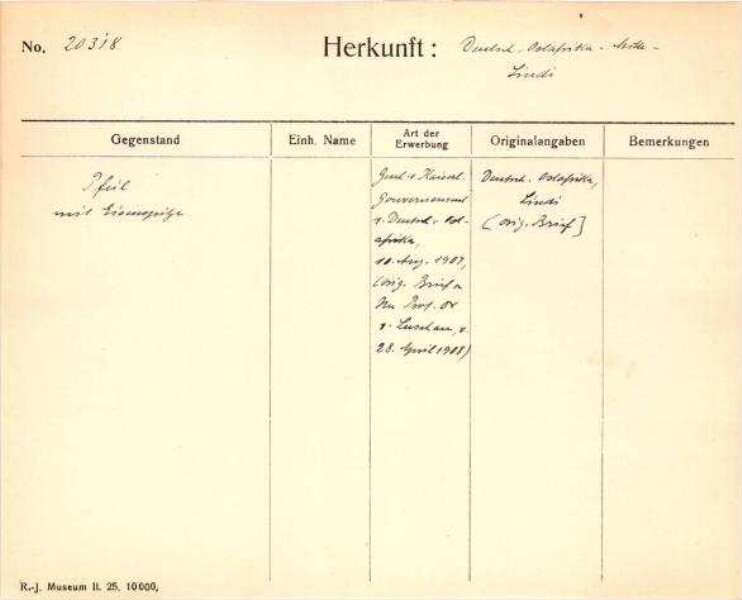 No. 20318
Herkunft: Deutsch-Ostafrika -
Lindi
Gegenstand
Einh. Name
Art der
Erwerbung
Originalangaben
Bemerkungen
Pfeil
mit Eisenspitze
Gesch. v. Kaiserl.
Gouvernement
v. Deutsch-Ost-
afrika,
10. Aug. 1907,
(orig. Brief v.
Hn Prof. Dr
v. Luschan, v.
28. April 1908)
Deutsch. Ostafrika,
Lindi
(orig. Brief]
R.-J. Museum II. 25. 10000,